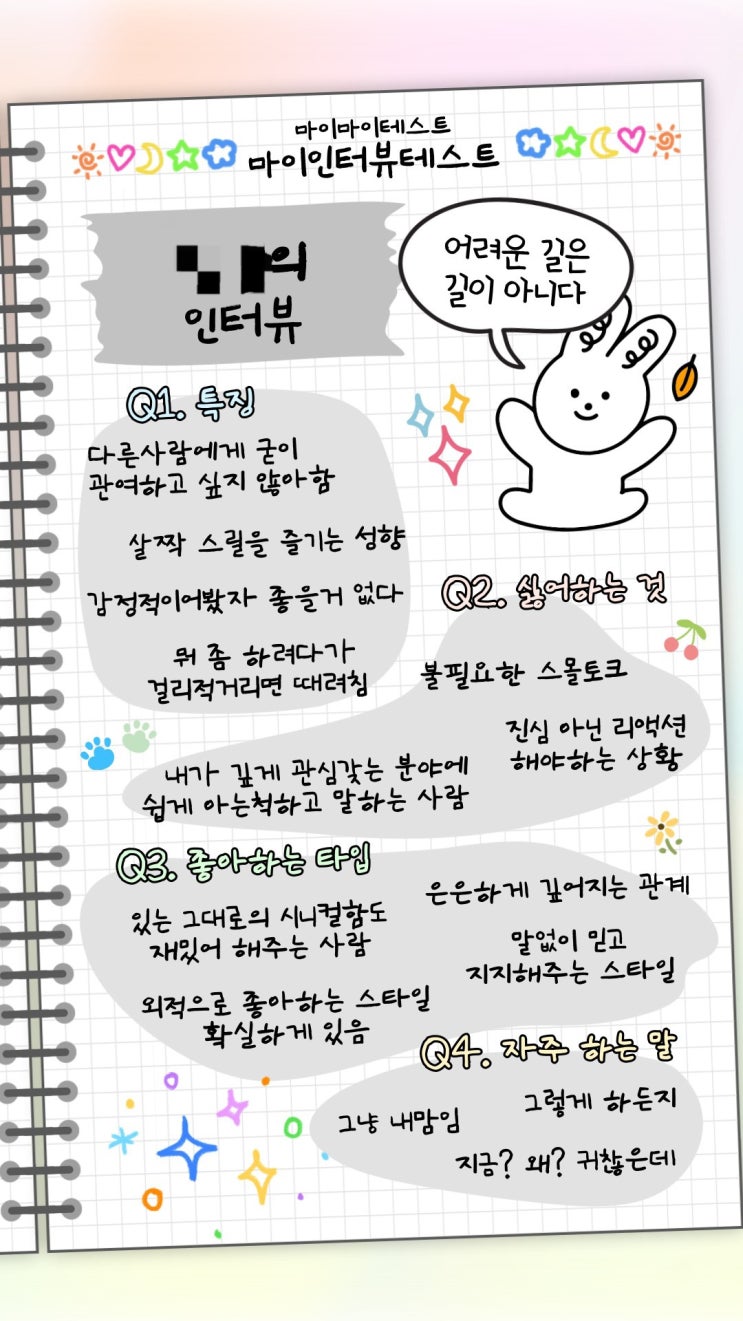 마이마이테스트
마이인터뷰테스트
의
인터뷰
어려운 길은
길이 아니다
Q1. 특징
다른사람에게 굳이
관여하고 싶지 않아함
살짝 스릴을 즐기는 성향
감정적이어봤자 좋을거 없다
뭐 좀 하려다가
걸리적거리면 때려침
Q2. 싫어하는 것
불필요한 스몰토크
진심 아닌 리액션
해야하는 상황
내가 깊게 관심갖는 분야에
쉽게 아는척하고 말하는 사람
Q3. 좋아하는 타입
은은하게 깊어지는 관계
있는 그대로의 시니컬함도
재밌어 해주는 사람
말없이 믿고
지지해주는 스타일
외적으로 좋아하는 스타일
확실하게 있음
Q4. 자주 하는 말
그렇게 하든지
그냥 내맘임
지금? 왜? 귀찮은데